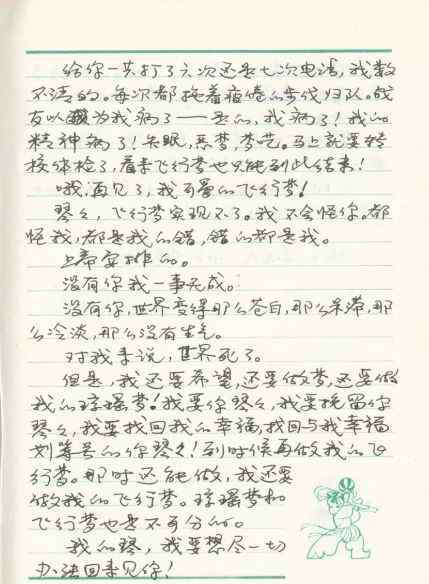 给你一共打了六次还是七次电话，我数
不清的。每次都拖着疲倦的步伐归队。战
友以为我病了——是的，我病了！我的
精神病了！失眠，恶梦，梦呓。马上就要转
校体检了，看来飞行梦也只能到此结束！
哦，再见了，我可爱的飞行梦！
琴々，飞行梦实现不了。我不会怪你。都
怪我，都是我的错，错的都是我。
上帝安排的。
没有你我一事无成。
没有你，世界变得那么苍白，那么呆滞，那
么冷淡，那么没有生气。
对我来说，世界死了。
但是，我还要希望，还要做梦，还要做
我的琼瑶梦！我要你琴々，我要挽留你
琴々，我要找回我的幸福，找回与我幸福
划等号的你琴々！到时候再做我的飞
行梦。那时还能做，我还要
做我的飞行梦。琼瑶梦和
飞行梦也是不可分的。
我的琴，我要想尽一切
办法回来见你！